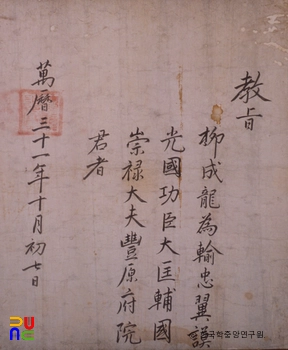 教旨
柳成龍為輸忠翼謨
光國功臣大匡輔國
崇祿大夫豐原府院
君者
萬曆三十一年十月初七日
국학중앙연구원